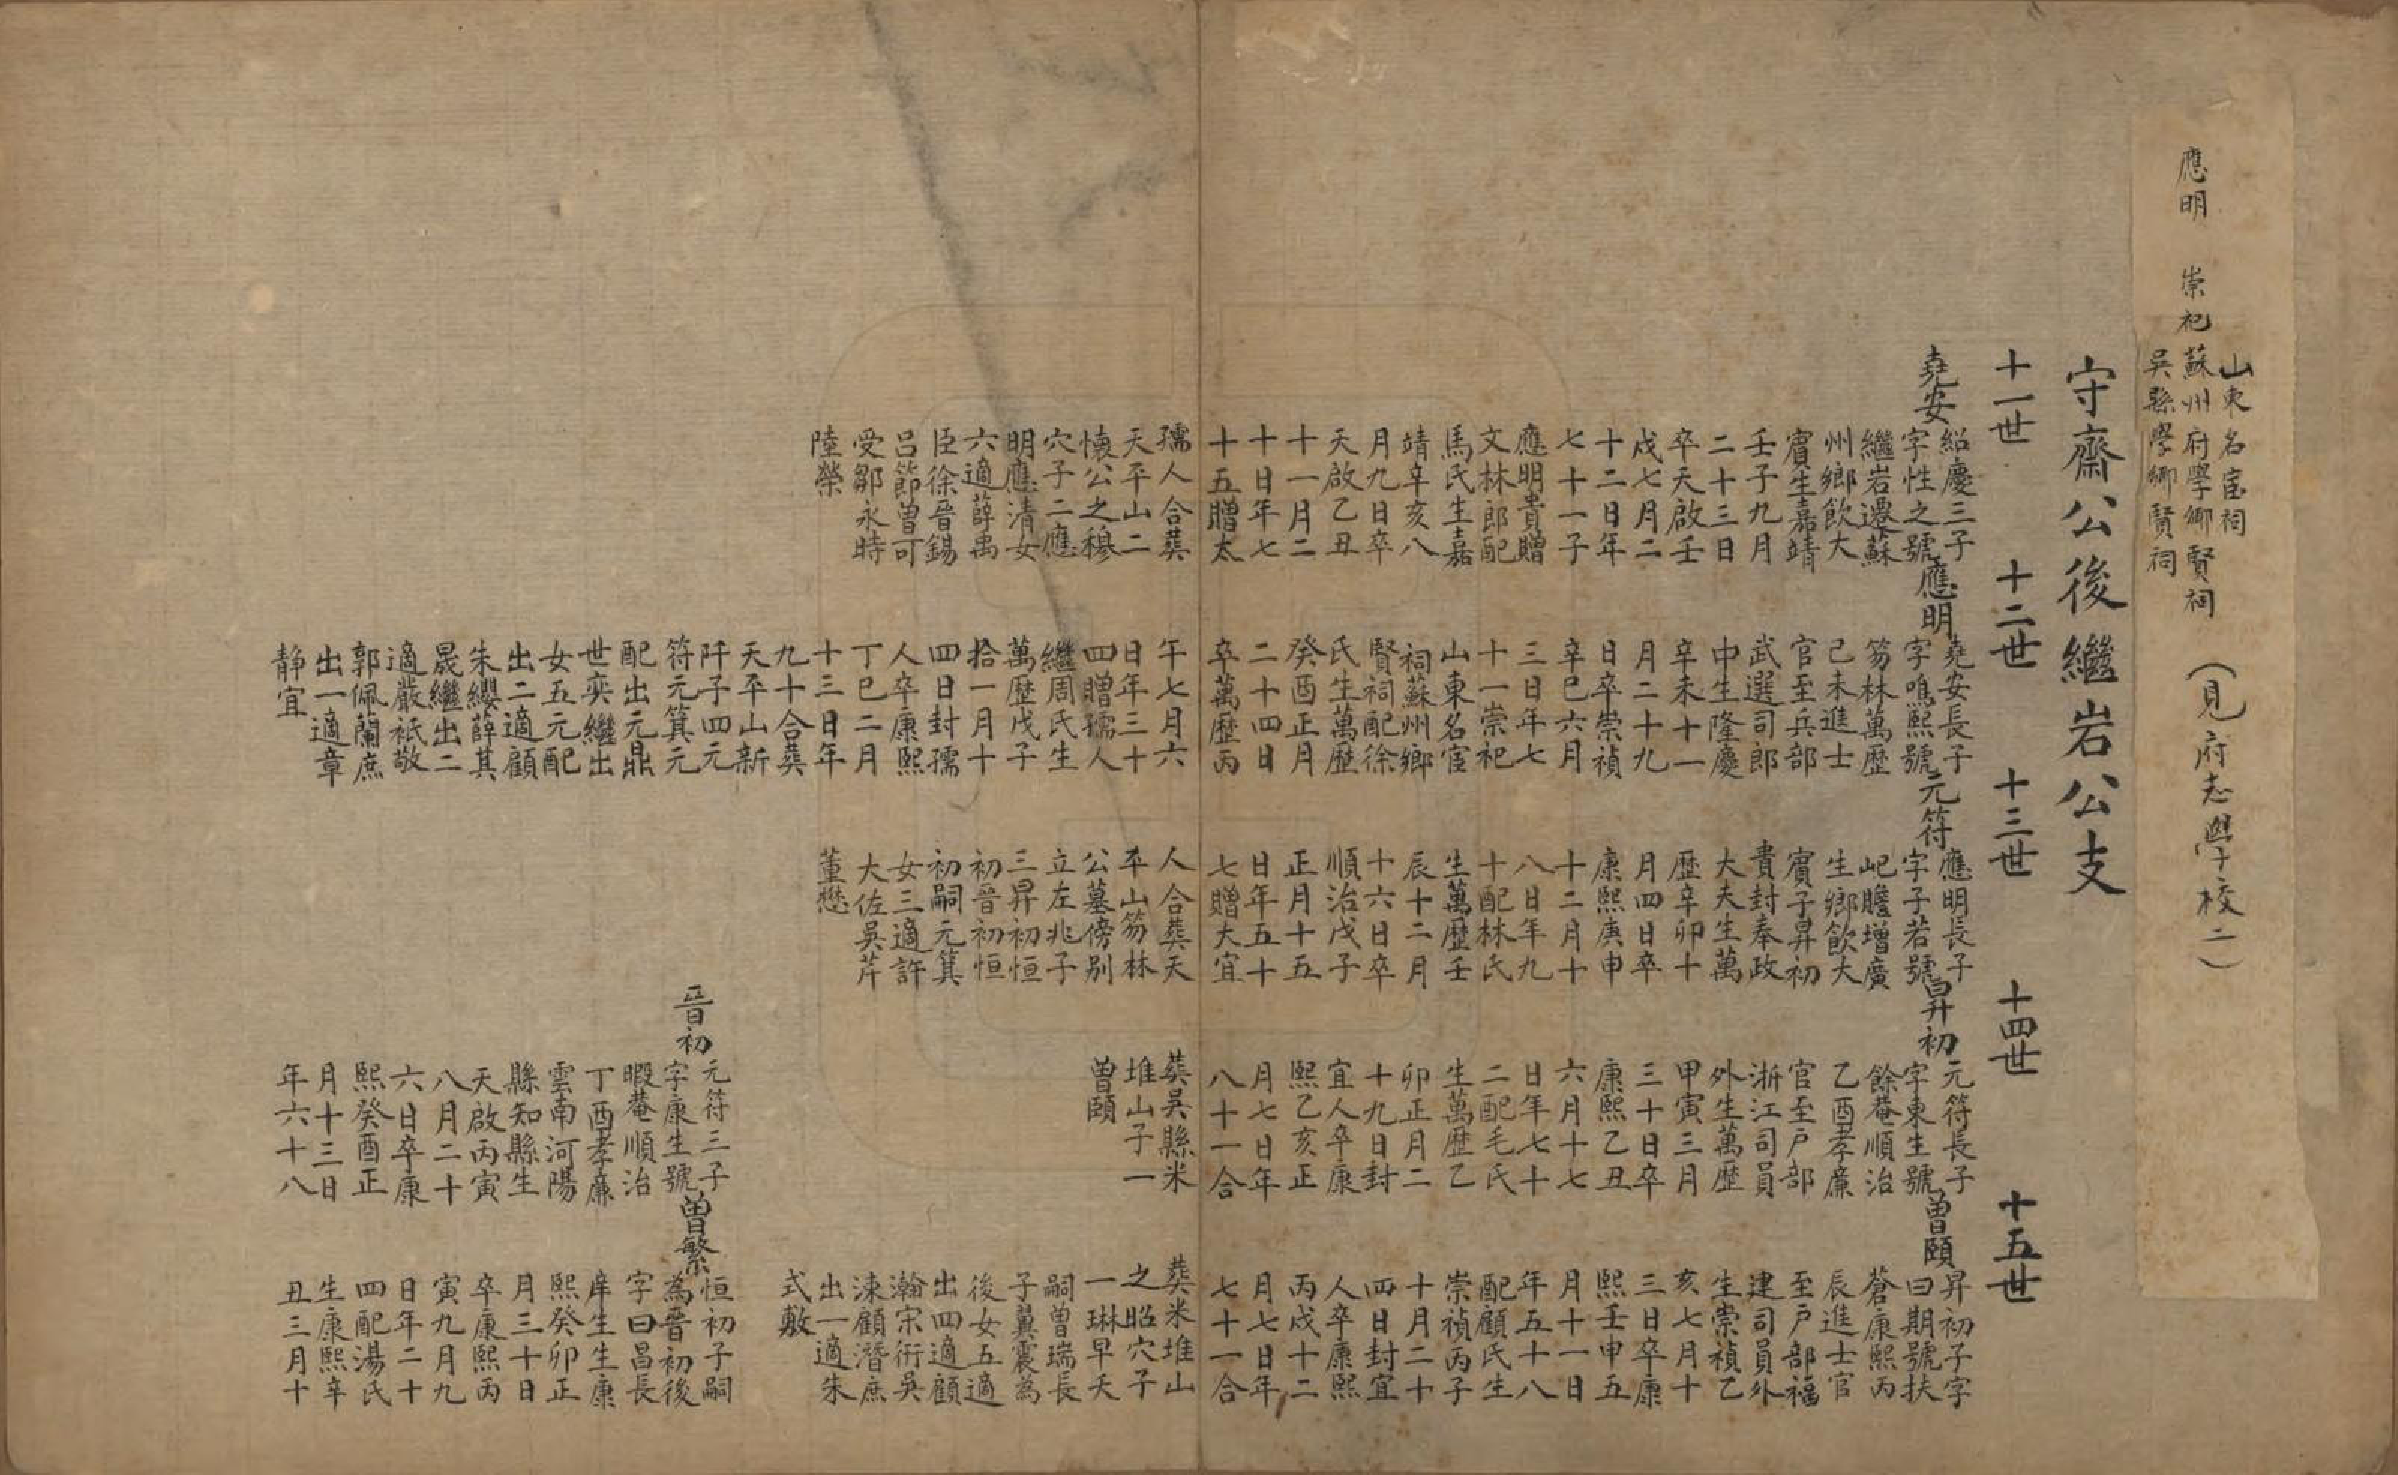 應明 崇祀
山東名宦祠
蘇州府學鄉賢祠
吳縣學鄉賢祠
(見府志學校二)
守齋公後繼岩公支
十一世
十二世
十三世
十四世
十五世
堯安
紹慶三子
字性之號
繼岩遷蘇
州鄉飲大
賓生嘉靖
壬子九月
二十三日
卒天啟壬
戌七月二
十二日年
七十一子
應明貴贈
文林郎配
馬氏生嘉
靖辛亥八
月九日卒
天啟乙丑
十一月二
十日年七
十五贈太
孺人合葬
天平山二
懷公之穆
穴子二應
明應清女
六適薛禹
臣徐晉錫
呂節曾可
受鄒永時
陸榮
應明
堯安長子
字鳴熙號
笏林萬歷
己未進士
官至兵部
武選司郎
中生隆慶
辛未十一
月二十九
日卒崇禎
辛巳六月
三日年七
十一崇祀
山東名宦
祠蘇州鄉
賢祠配徐
氏生萬歷
癸酉正月
二十四日
卒萬歷丙
午七月六
日年三十
四贈孺人
繼周氏生
萬歷戊子
拾一月十
四日封孺
人卒康熙
丁巳二月
十三日年
九十合葬
天平山新
阡子四元
符元箕元
配出元鼎
世奕繼出
女五元配
出二適顧
朱纓薛其
晟繼出二
適嚴祇敬
郭佩蘭庶
出一適章
靜宜
元符
應明長子
字子若號
屺瞻增廣
生鄉飲大
賓子昇初
貴封奉政
大夫生萬
歷辛卯十
月四日卒
康熙庚申
十二月十
八日年九
十配林氏
生萬歷壬
辰十二月
十六日卒
順治戊子
正月十五
日年五十
七贈大宜
人合葬天
平山笏林
公墓傍別
立左兆子
三昇初恒
初晉初恒
初嗣元箕
女三適許
大佐吳芹
董懋
昇初
元符長子
字東生號
餘菴順治
乙酉孝廉
官至戶部
浙江司員
外生萬歷
甲寅三月
三十日卒
康熙乙丑
六月十七
日年七十
二配毛氏
生萬歷乙
卯正月二
十九日封
宜人卒康
熙乙亥正
月七日年
八十一合
葬吳縣米
堆山子一
曾頤
晉初
元符三子
字康生號
暇菴順治
丁酉孝廉
雲南河陽
縣知縣生
天啟丙寅
八月二十
六日卒康
熙癸酉正
月十三日
年六十八
曾頤
昇初子字
曰期號扶
蒼康熙丙
辰進士官
至戶部福
建司員外
生崇禎乙
亥七月十
三日卒康
熙壬申五
月十一日
年五十八
配顧氏生
崇禎丙子
十月二十
四日封宜
人卒康熙
丙戌十二
月七日年
七十一合
葬米堆山
之昭穴子
一琳早夭
嗣曾瑞長
子翼震為
後女五適
出四適顧
瀚宋衎吳
涑顧潛庶
出一適朱
式敷
曾繁
恒初子嗣
為晉初後
字曰昌長
庠生生康
熙癸卯正
月三十日
卒康熙丙
寅九月九
日年二十
四配湯氏
生康熙辛
丑三月十